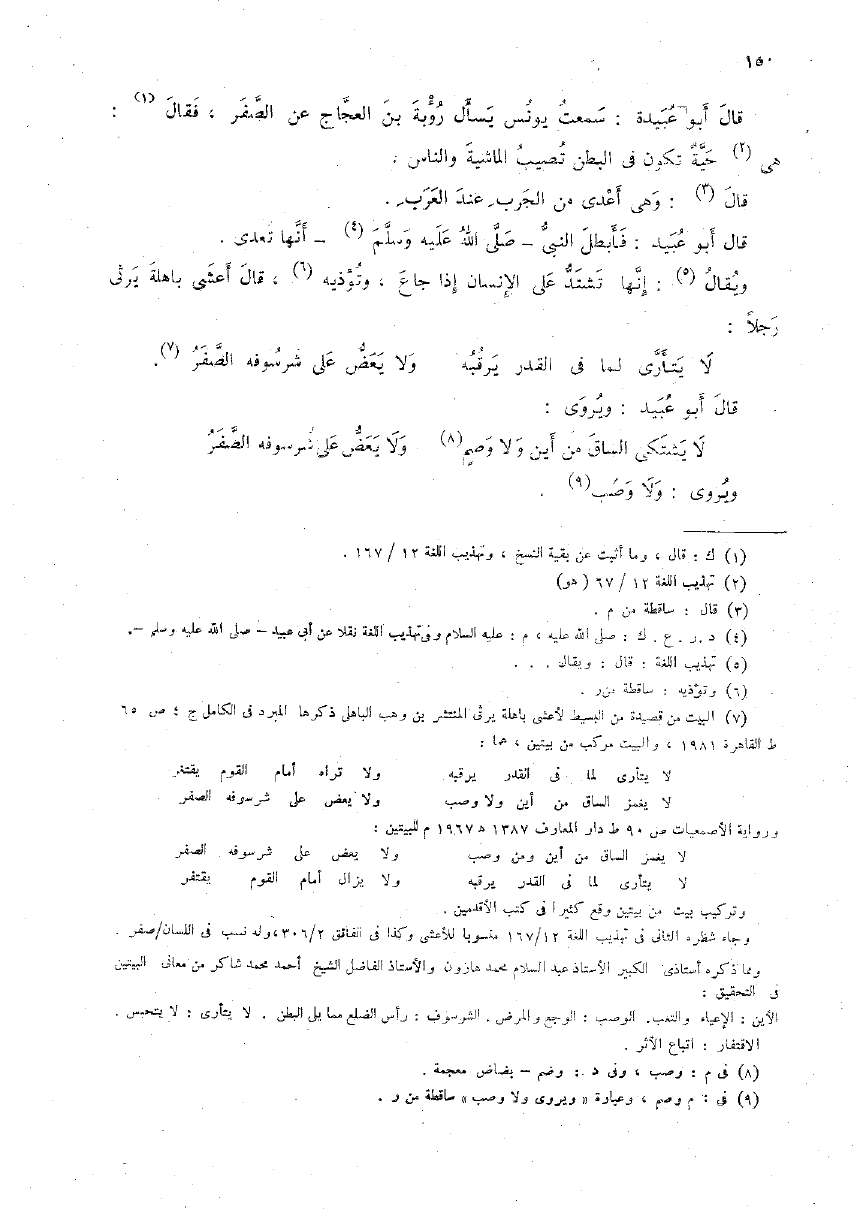 ١٥٠
قالَ أَبو عُبَيدة : سَمعتُ يونُس يَسأَل رُؤْبةَ بنَ العجَّاج عن الصَّفَر ، فَقالَ (١) :
هى (٢) حَيَّةٌ تكون فى البطن تُصيبُ الماشيةَ والناس ،
قالَ (٣) : وَهى أَعْدى من الجَرب عندَ العَرَب .
قال أَبو عُبَيد : فَأَبطلَ النبىُّ – صَلَّى اللهُ عَلَيه وَسَلَّمَ (٤) – أَنَّها تُعدى .
ويُقالُ (٥) : إِنَّها تَشتَدُّ عَلى الإِنسان إِذا جاعَ ، وتُؤْذيه (٦) ، قالَ أَعشَى باهلةَ يَرثى
رَجلاً :
لَا يَتأَرَّى لما فى القدر يَرقُبُه وَلا يَعَضُّ عَلى شرسُوفه الصَّفَرُ (٧).
قالَ أَبو عُبَيد : ويُروَى :
لَا يَشتَكى الساقَ من أَين وَلا وَصمٍ (٨) وَلَا يَعَضُّ عَلى شُرسوفه الصَّفَرُ
ويُروى : وَلَا وَصَب (٩) .
(١) ك : قال ، وما أثبت عن بقية النسخ ، وتهذيب اللغة ١٢ / ١٦٧ .
(٢) تهذيب اللغة ١٢ / ٦٧ (هو)
(٣) قال : ساقطة من م .
(٤) د. ر . ع . ك : صلى الله عليه ، م : عليه السلام وفى تهذيب اللغة نقلا عن أبى عبيد – صلى الله عليه وسلم –.
(٥) تهذيب اللغة : قال : ويقال . . .
(٦) وتؤذيه : ساقطة من ر .
(٧) البيت من قصيدة من البسيط لأعشى باهلة يرثى المنتشر بن وهب الباهلى ذكرها المبرد فى الكامل ج ٤ ص ٦٥
ط القاهرة ١٩٨١ ، والبيت مركب من بيتين ، هما :
لا يتأرى لما فى القدر يرقبه ولا تراه أمام القوم يقتفر
لا يغمز الساق من أين ولا وصب ولا يعض على شرسوفه الصفر
ورواية الأصمعيات ص ٩٠ ط دار المعارف ١٣٨٧ ه ١٩٦٧ م للبيتين :
لا يغمز الساق من أين ومن وصب ولا يعض على شرسوفه الصفر
لا يتأرى لما فى القدر يرقبه ولا يزال أمام القوم يقتفر
وتركيب بيت من بيتين وقع كثيرا فى كتب الأقدمين .
وجاء شطره الثانى فى تهذيب اللغة ١٦٧/١٢ منسوبا للأعشى وكذا فى الفائق ٣٠٦/٢ ، وله نسب فى اللسان/صفر .
ومما ذكره أستاذى الكبير الأستاذ عبد السلام محمد هارون والأستاذ الفاضل الشيخ أحمد محمد شاكر من معانى البيتين
فى التحقيق :
الأين : الإعياء والتعب. الوصب : الوجع والمرض . الشرسوف : رأس الضلع مما يلى البطن . لا يتأرى : لا يتحبس .
الاقتفار : اتباع الأثر .
(٨) فى م : وصب ، وفى د : وضم – بضاض معجمة .
(٩) فى : م وصم ، وعبارة « ويروى ولا وصب » ساقطة من ر .